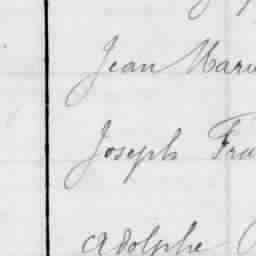 Jean Marie
Joseph Fra
Adolphe